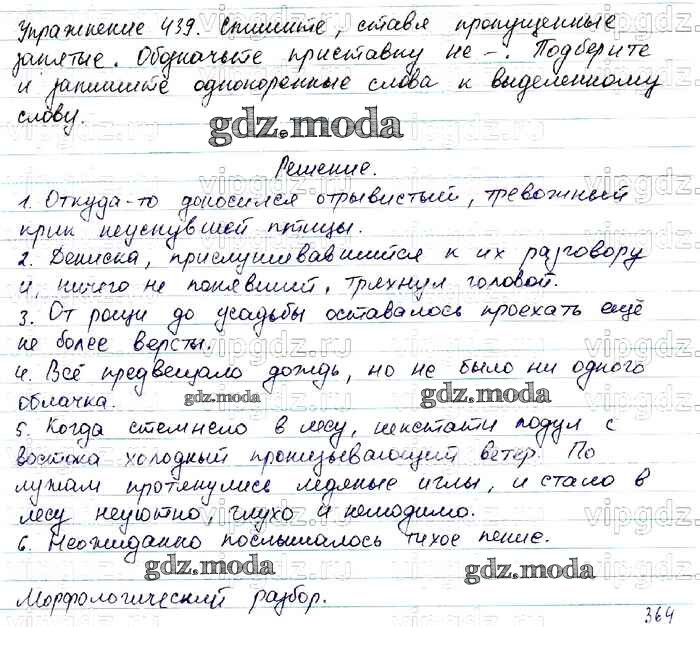 Упражнение 439. Спишите, ставя пропущенные
запятые. Обозначьте приставку не -. Подберите
и запишите однокоренные слова к выделенному
слову.
gdz.moda
Решение.
1. Откуда-то доносился отрывистый, тревожный
крик неуснувшей птицы.
2. Дениска, прислушивавшийся к их разговору
и, ничего не понявший, тряхнул головой.
3. От рощи до усадьбы оставалось проехать ещё
не более версты.
4. Всё предвещало дождь, но не было ни одного
облачка.
gdz.moda
gdz.moda
5. Когда стемнело в лесу, некстати подул с
востока холодный пронизывающий ветер. По
лужам протянулись ледяные иглы, и стало в
лесу неуютно, глухо и нелюдимо.
6. Неожиданно послышалось тихое пение.
gdz.moda
gdz.moda
Морфологический разбор.
364